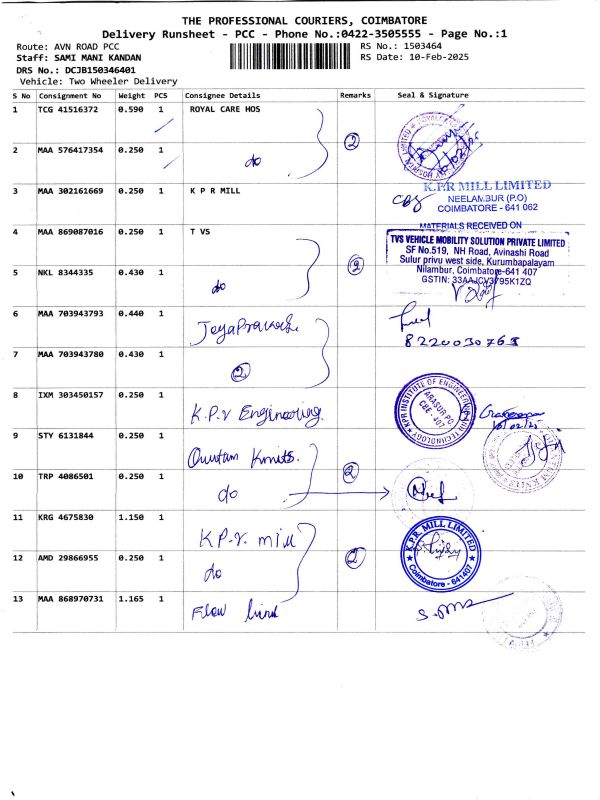 THE PROFESSIONAL COURIERS, COIMBATORE
Delivery Runsheet - PCC - Phone No.:0422-3505555 - Page No.:1
Route: AVN ROAD PCC RS No.: 1503464
Staff: SAMI MANI KANDAN RS Date: 10-Feb-2025
DRS No.: DCJB150346401
Vehicle: Two Wheeler Delivery
S No Consignment No Weight PCS Consignee Details Remarks Seal & Signature
1 TCG 41516372 0.590 1 ROYAL CARE HOS
2 MAA 576417354 0.250 1 do 2
3 MAA 302161669 0.250 1 K P R MILL
K.P.R MILL LIMITED
NEELAMBUR (P.O)
COIMBATORE - 641 062
4 MAA 869087016 0.250 1 T VS
MATERIALS RECEIVED ON
TVS VEHICLE MOBILITY SOLUTION PRIVATE LIMITED
SF No.519, NH Road, Avinashi Road
Sulur privu west side, Kurumbapalayam
Nilambur, Coimbatore-641 407
GSTIN: 33AAJCV3795K1ZQ
5 NKL 8344335 0.430 1 do 2
6 MAA 703943793 0.440 1
8220030768
7 MAA 703943780 0.430 1 2
8 IXM 303450157 0.250 1 K.P.r Engineering.
KPR INSTITUTE OF ENGINEERING AND TECHNOLOGY
ARASUR PO
CBE - 407
9 STY 6131844 0.250 1
10 TRP 4086501 0.250 1 do 2
11 KRG 4675830 1.150 1 K.P.r. mill
K.P.R. MILL LIMITED
Coimbatore - 641407
12 AMD 29866955 0.250 1 do 2
13 MAA 868970731 1.165 1 Flow